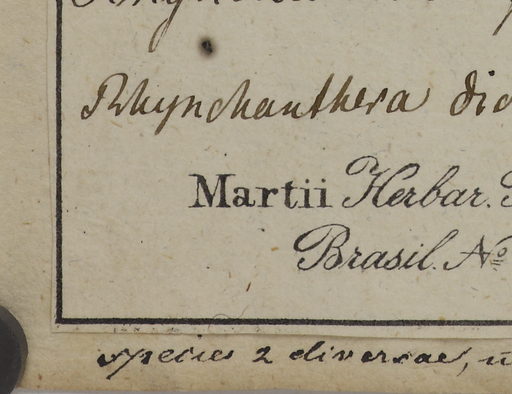 Rhynchanthera dic
Martii Herbar.
Brasil. No
species 2 diversae,